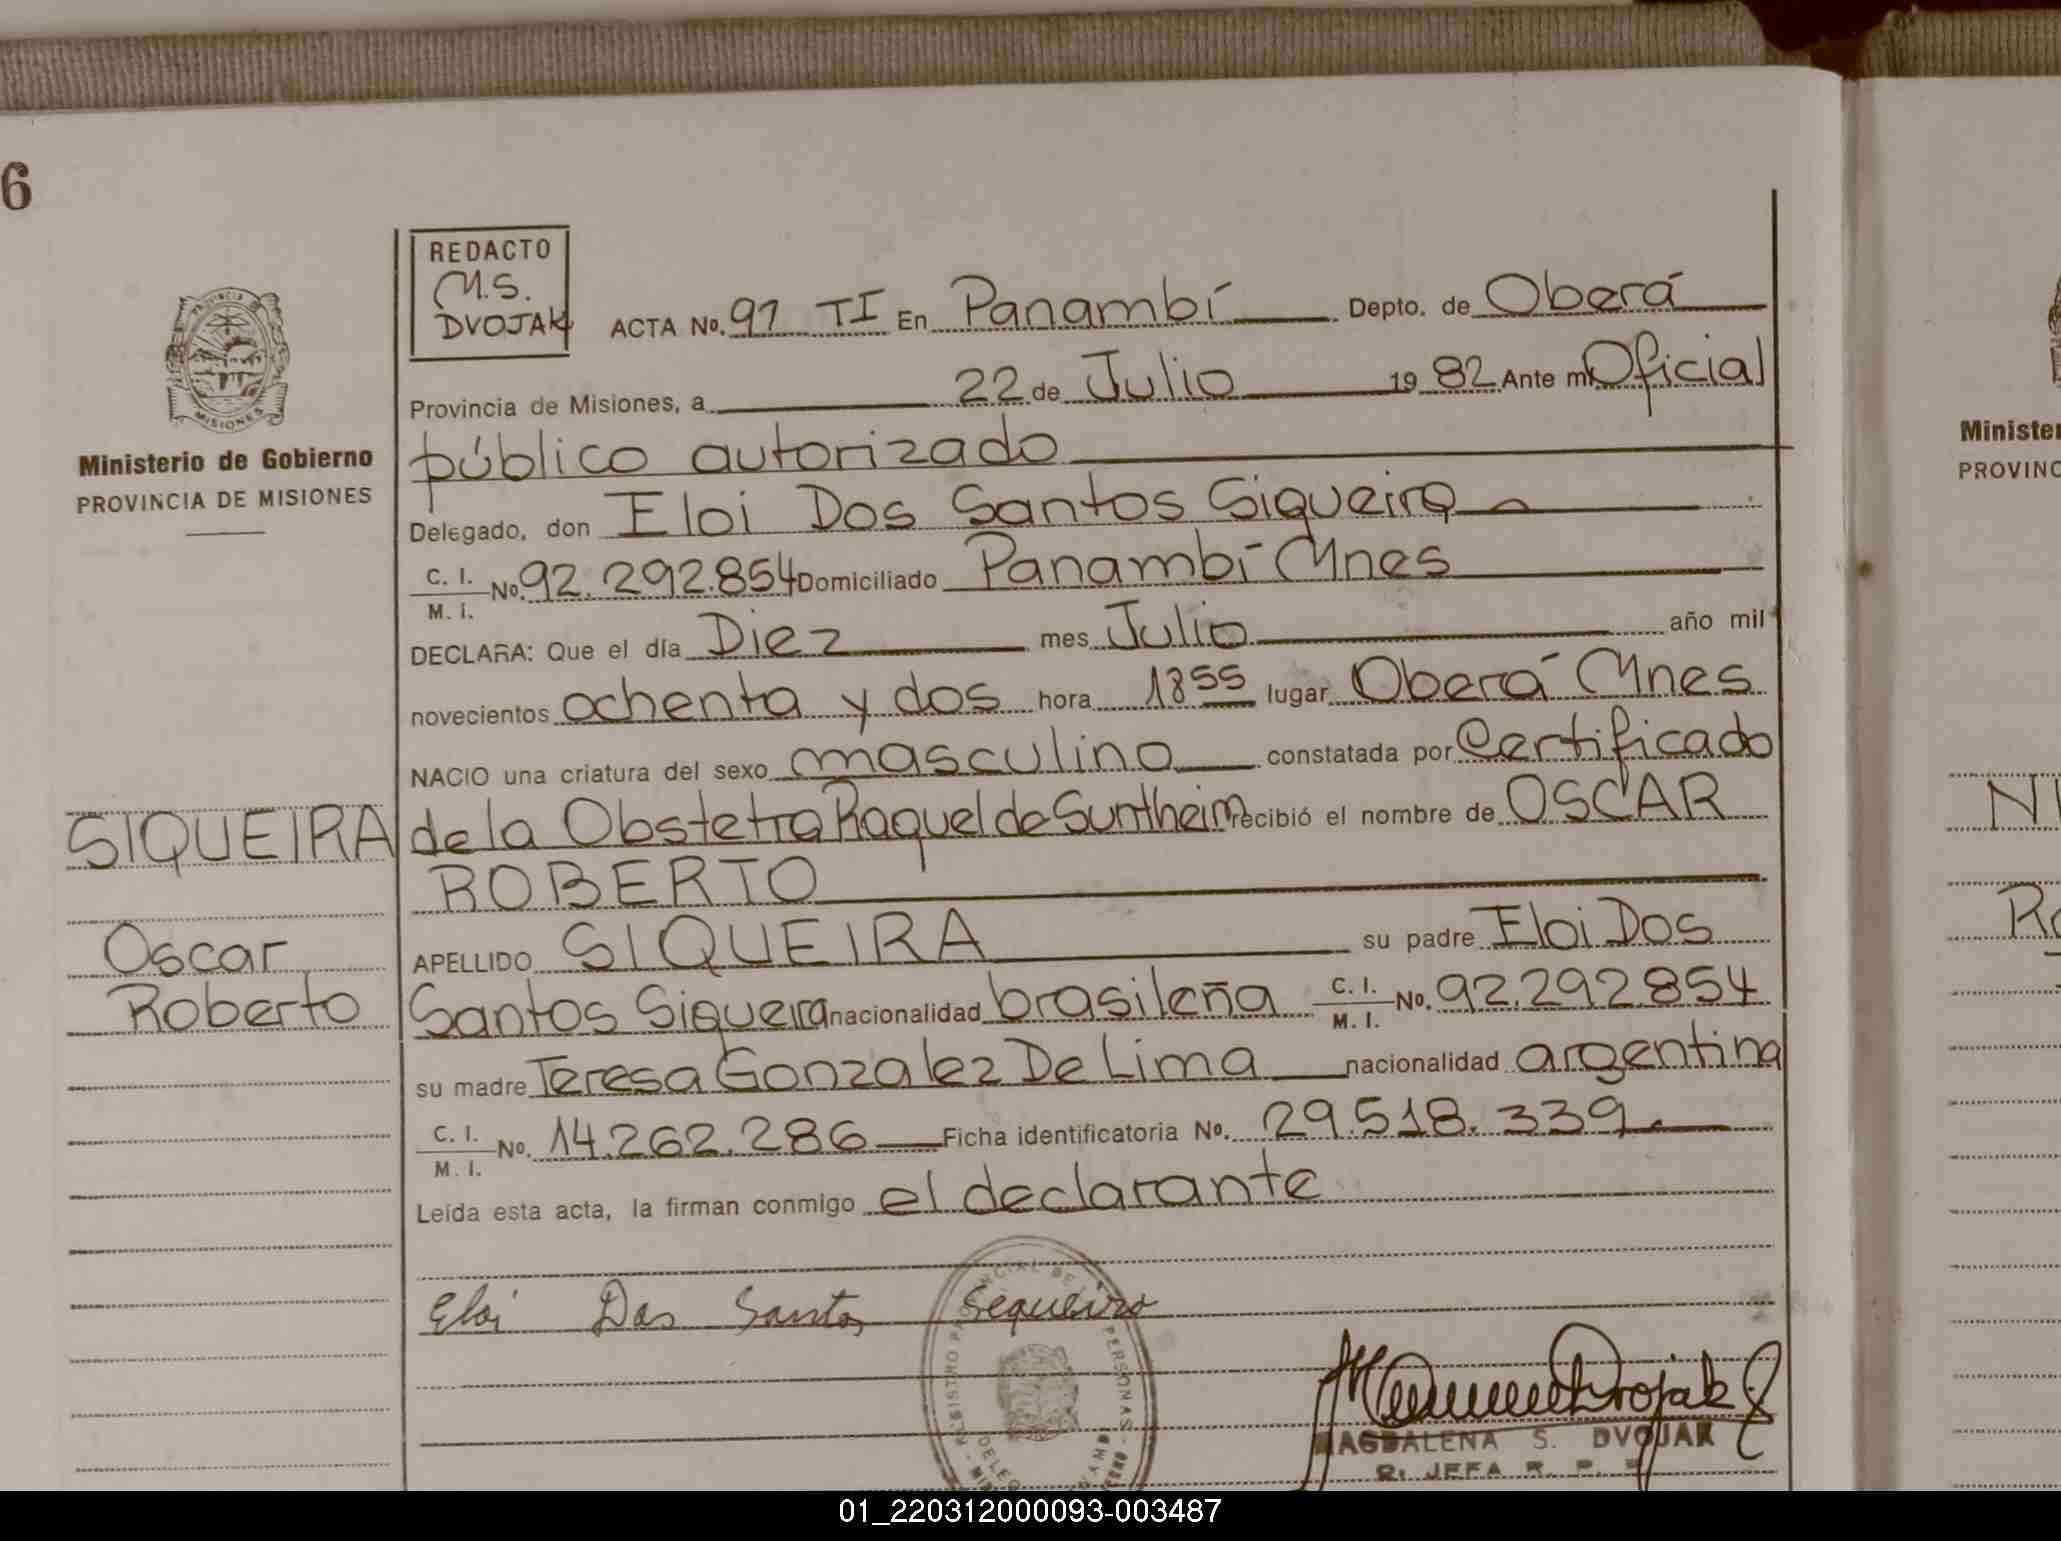 6
REDACTO
M.S.
DVOJAK
ACTA No. 97 TI En Panambí Depto. de Oberá
Provincia de Misiones, a 22 de Julio 1982 Ante mi Oficial
público autorizado
Delegado, don Eloi Dos Santos Siqueira
C. I. M. I. No. 92.292.854 Domiciliado Panambí Mnes
DECLARA: Que el día Diez mes Julio año mil
novecientos ochenta y dos hora 18 55 lugar Oberá Mnes
NACIO una criatura del sexo masculino constatada por Certificado
de la Obstetra Raquel de Suntheim recibió el nombre de OSCAR
ROBERTO
APELLIDO SIQUEIRA su padre Eloi Dos
Santos Siqueira nacionalidad brasileña C. I. M. I. No. 92.292.854
su madre Teresa Gonzalez De Lima nacionalidad argentina
C. I. M. I. No. 14.262.286 Ficha identificatoria No. 29.518.339
Leída esta acta, la firman conmigo el declarante
Eloi Dos Santos Sequeira
MAGDALENA S. DVOJAK
JEFA R. P.
PROVINCIA
MISIONES
Ministerio de Gobierno
PROVINCIA DE MISIONES
SIQUEIRA
Oscar
Roberto
Minister
PROVINC
NI
Ro
01_220312000093-003487